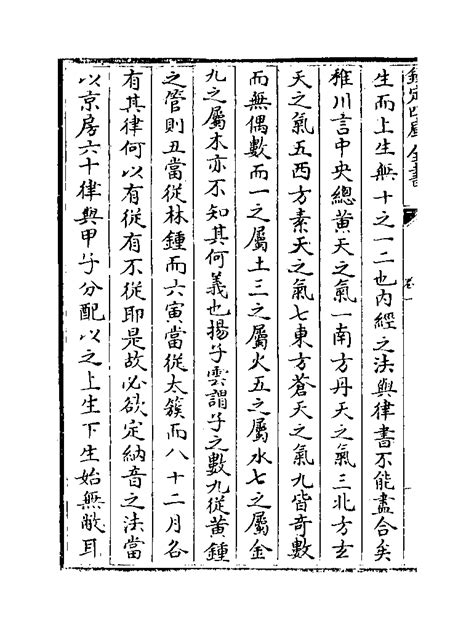 欽定四庫全書
卷一
生而上生無十之一二也内經之法與律書不能盡合矣
稚川言中央總黃天之氣一南方丹天之氣三北方玄
天之氣五西方素天之氣七東方蒼天之氣九皆奇數
而無偶數而一之屬土三之屬火五之屬水七之屬金
九之屬木亦不知其何義也揚子雲謂子之數九從黃鍾
之管則丑當從林鍾而六寅當從太簇而八十二月各
有其律何以有從有不從耶是故必欲定納音之法當
以京房六十律與甲子分配以之上生下生始無敝耳